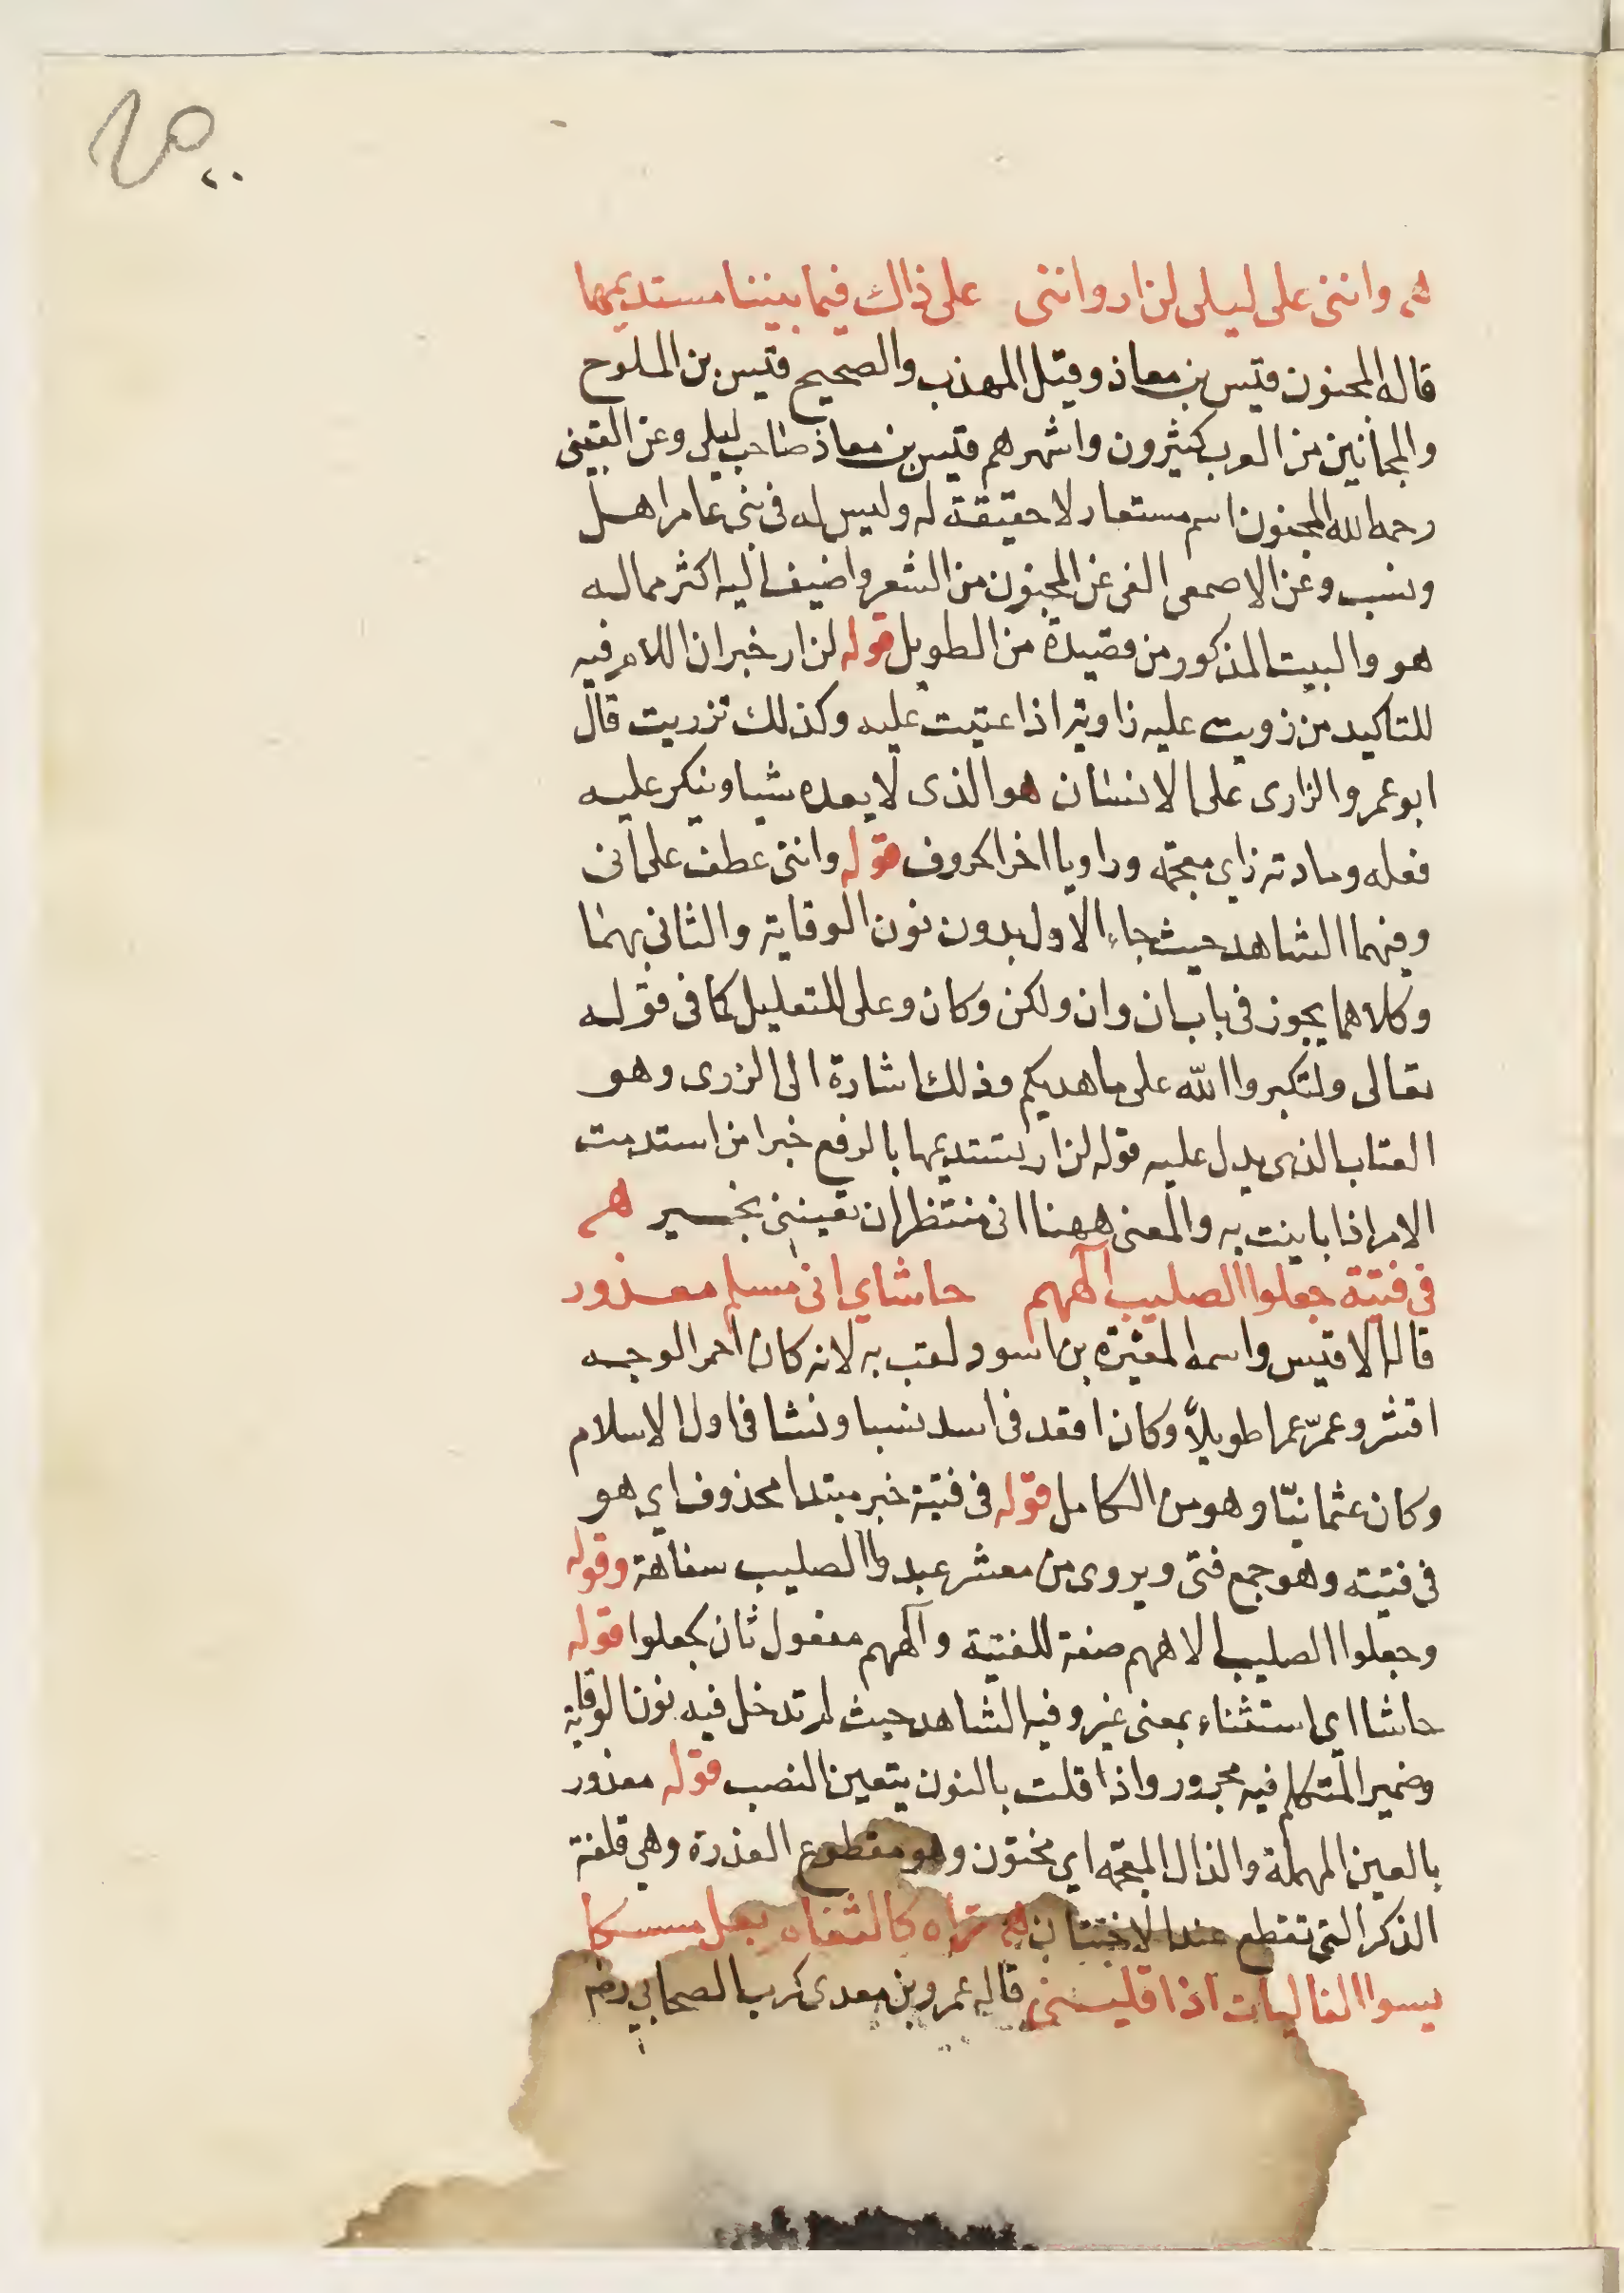 هـ وانني على ليلى لزار وانني على ذاك فيما بيننا مستديمها
قاله المجنون قيس بن معاذ وقيل المهذب والصحيح قيس بن الملوح
والمجانين من العرب كثيرون واشهرهم قيس بن معاذ صاحب ليلى وعن القيني
رحمه الله المجنون اسم مستعار لا حقيقة له وليس له في بني عامر اهل
ونسب وعن الاصمعي الفي عن المجنون من الشعر واضيف اليه اكثر مما له
هو والبيت المذكور من قصيدة من الطويل قوله لزار خبر ان اللام فيه
للتاكيد من زويت عليه زاوية اذا عتيت عليه وكذلك تزريت قال
ابو عمرو الزارى على الانسان هو الذى لا يعده شيا وينكر عليه
فعله ومادته زاي معجمه ورا ويا اخر الحروف قوله وانني عطف على اني
وفيهما الشاهد حيث جاء الاول بدون نون الوقاية والثاني بهما
وكلاهما يجوز في باب ان وان ولكن وكان وعلى للتعليل كما في قوله
تعالى ولتكبروا الله على ما هديكم وذلك اشارة الى الزرى وهو
العتاب الذى يدل عليه قوله لزار يستديمها بالرفع خبر من استدمت
الامر اذا باينت به والمعنى ههنا اني منتظر ان تعينني بخير هـ
في فتية جعلوا الصليب آلههم حاشاي اني مسلم معذور
قاله الاقيس واسمه المغيرة بن اسود لقب به لانه كان احمر الوجه
اقشر وعمّر عمرا طويلاً وكان اقعد في اسد نسبا ونشا في اول الاسلام
وكان عثمانيّا وهو من الكامل قوله في فتية خبر مبتدا محذوف اي هو
في فتيته وهو جمع فتى ويروى من معشر عبدوا الصليب سفاهة وقوله
وجعلوا الصليب الاههم صفة للفتية وآلههم مفعول ثان لجعلوا قوله
حاشا اي استثناء بمعنى غير وفيه الشاهد حيث لم تدخل فيه نون الوقاية
وضمير المتكلم فيه مجرور واذا قلت بالنون يتعين النصب قوله معذور
بالعين المهملة والذال المعجمه اي مختون وهو مقطوع العذرة وهي قلفة
الذكر التي تقطع عند الاختتان هـ تراه كالثغام يعل مسكا
يسوا الفاليات اذا قليني قاله عمرو بن معدى كرب الصحابي رضى